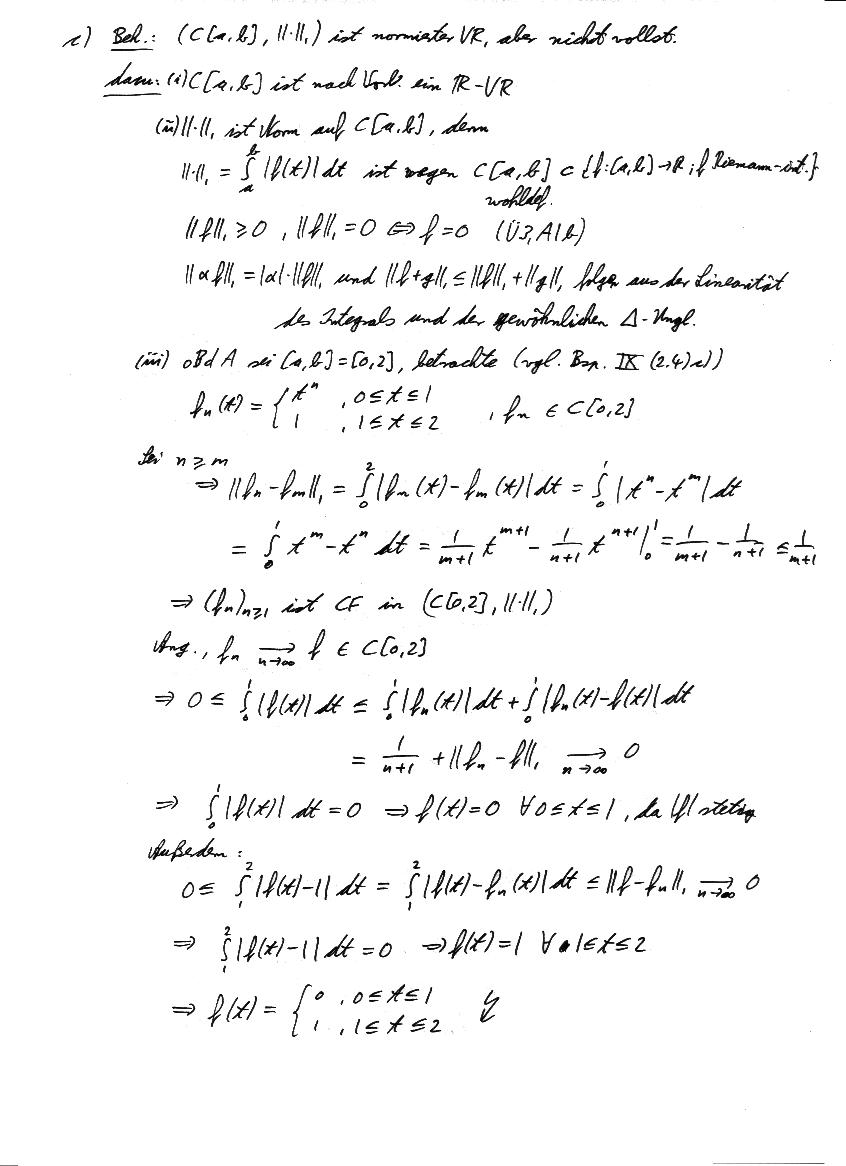 c) Beh.: (C[a,b], ||·||₁) ist normierter VR, aber nicht vollst.
dazu: (i) C[a,b] ist nach Vorl. ein ℝ-VR
(ii) ||·||₁ ist Norm auf C[a,b], denn
||·||₁ = ∫ₐᵇ |f(t)| dt ist wegen C[a,b] ⊂ {f:[a,b]→ℝ; f Riemann-int.}
wohldef.
||f||₁ ≥ 0 , ||f||₁ = 0 ⇔ f = 0 (Ü3, A1b)
||αf||₁ = |α|·||f||₁ und ||f+g||₁ ≤ ||f||₁ + ||g||₁ folgen aus der Linearität
des Integrals und der gewöhnlichen Δ-Ungl.
(iii) oBdA sei [a,b] = [0,2], betrachte (vgl. Bsp. IX (2.4)c))
fₙ(t) = { tⁿ , 0≤t≤1
1 , 1≤t≤2 , fₙ ∈ C[0,2]
Sei n ≥ m
⇒ ||fₙ - fₘ||₁ = ∫₀² |fₙ(t) - fₘ(t)| dt = ∫₀¹ |tⁿ - tᵐ| dt
= ∫₀¹ tᵐ - tⁿ dt = 1/(m+1) tᵐ⁺¹ - 1/(n+1) tⁿ⁺¹ |₀¹ = 1/(m+1) - 1/(n+1) ≤ 1/(m+1)
⇒ (fₙ)ₙ≥₁ ist CF in (C[0,2], ||·||₁)
Ang., fₙ →(n→∞) f ∈ C[0,2]
⇒ 0 ≤ ∫₀¹ |f(t)| dt ≤ ∫₀¹ |fₙ(t)| dt + ∫₀¹ |fₙ(t) - f(t)| dt
= 1/(n+1) + ||fₙ - f||₁ →(n→∞) 0
⇒ ∫₀¹ |f(t)| dt = 0 ⇒ f(t) = 0 ∀ 0≤t≤1, da |f| stetig
Außerdem:
0 ≤ ∫₁² |f(t) - 1| dt = ∫₁² |f(t) - fₙ(t)| dt ≤ ||f - fₙ||₁ →(n→∞) 0
⇒ ∫₁² |f(t) - 1| dt = 0 ⇒ f(t) = 1 ∀ 1≤t≤2
⇒ f(t) = { 0 , 0≤t≤1
1 , 1≤t≤2 ↯